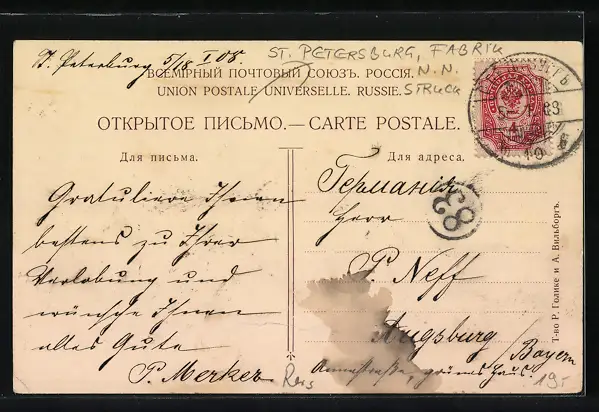 St. Petersburg 5/18 I 08.
ST. PETERSBURG, FABRIK
N.N.
STRUCK
ВСЕМІРНЫЙ ПОЧТОВЫЙ СОЮЗЪ. РОССІЯ.
UNION POSTALE UNIVERSELLE. RUSSIE.
ОТКРЫТОЕ ПИСЬМО.—CARTE POSTALE.
Для письма.
Gratuliere Ihnen
bestens zu Ihrer
Verlobung und
wünsche Ihnen
alles Gute
P. Merker
Для адреса.
Германія
Herr
83
P. Neff
Augsburg
/Bayern
Annastraße, grünes Haus.
Т-во Р. Голике и А. Вильборгъ.
19.-